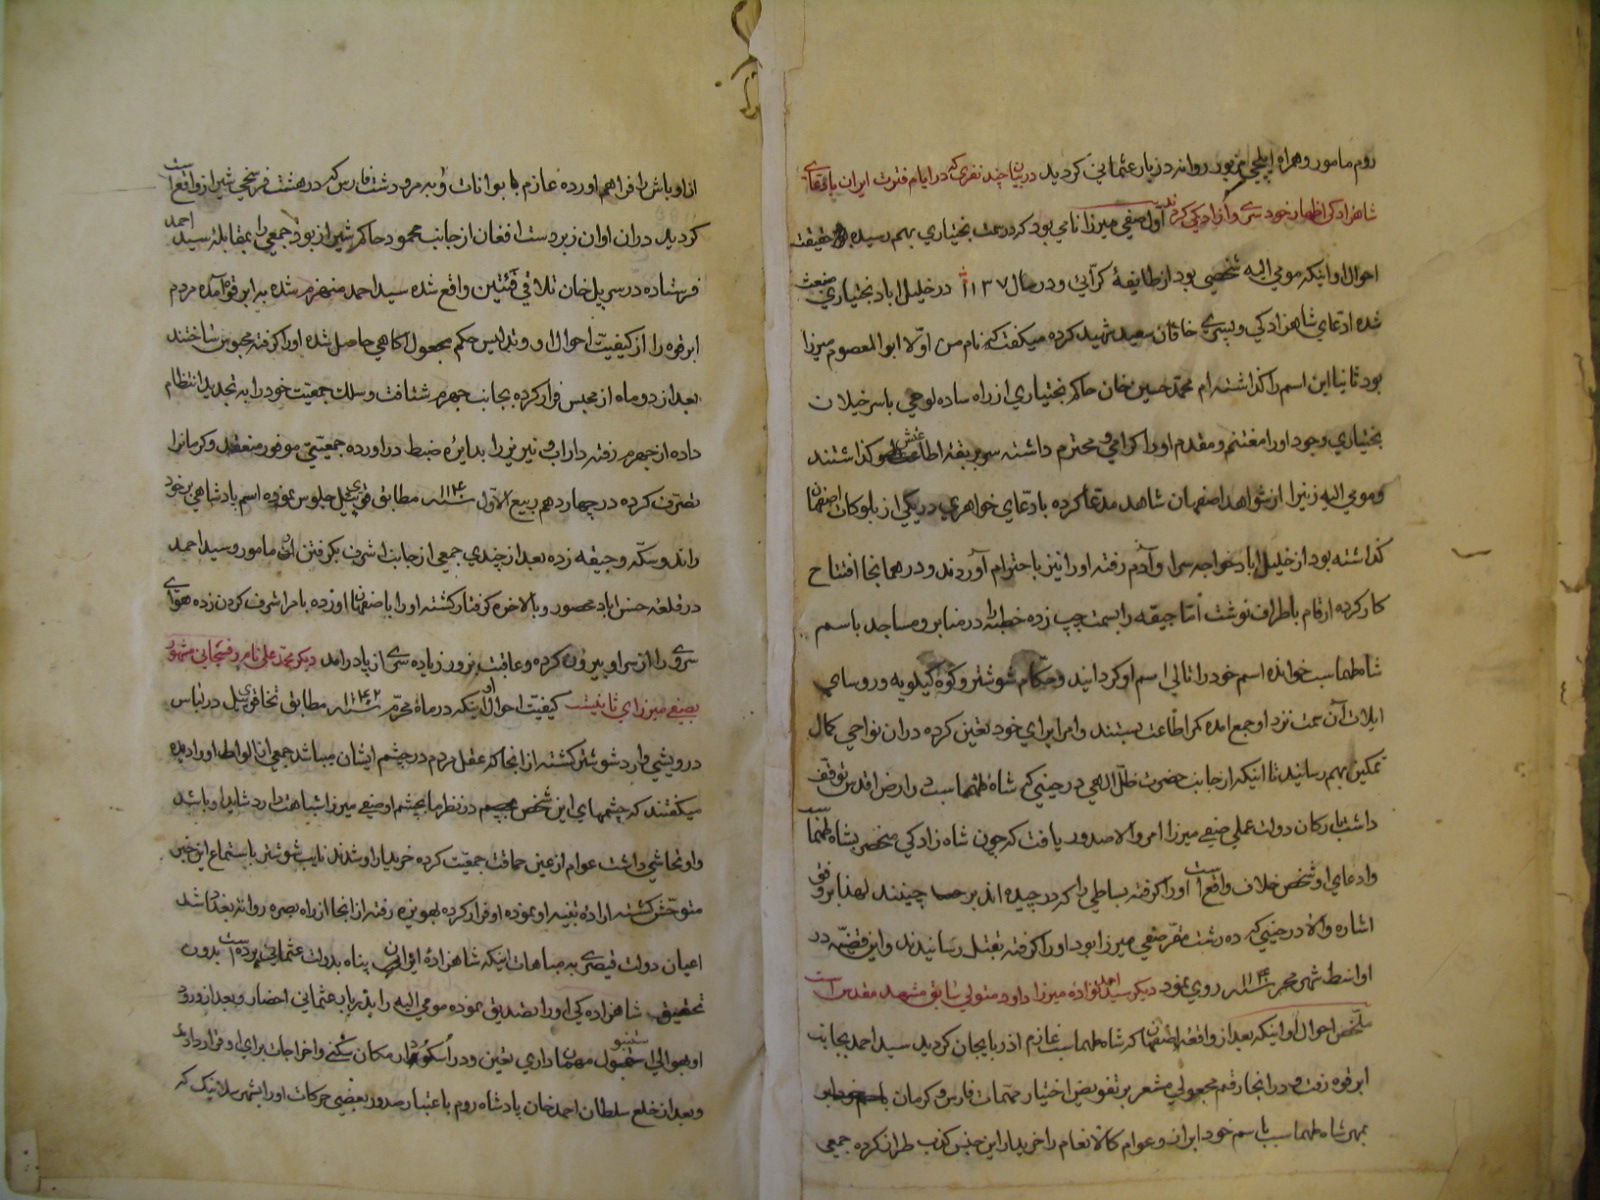 روم مامور و همراه ایلچی مزبور روانه دربار عثمانی کردید در بیان چند نفری که در ایام فترت ایران بادعای
شاهزادکی اظهار خودسری و ازادیکی کردند اول صفی میرزا نامی بود که در سمت بختیاری بهم رسیده حقیقت
احوال او اینکه مومی الیه شخصی بود از طایفهٔ کرائی و در سال ۱۱۳۷ در خلیل اباد بختیاری منبعث
شده ادعای شاهزادکی و پسری خاقان سعید شهید کرده میکفت که نام من اولا ابوالمعصوم میرزا
بود ثانیا این اسم را کذاشته ام محمد حسین خان حاکم بختیاری از راه ساده لوحی با سرخیلان
بختیاری وجود او را مغتنم و مقدم او را کرامی و محترم داشته سر بربقهٔ اطاعتش کذاشتند
و مومی الیه زنی را از شواهد اصفهان شاهد مدعا کرده بادعای خواهری در یکی از بلوکات اصفهان
کذاشته بود از خلیل اباد خواجه سرا و آدم رفته او را نیز باحترام آوردند و در همانجا افتتاح
کار کرده ارقام باطراف نوشت اما جیقه را بسمت چپ زده خطبه را در منابر و مساجد باسم
شاه طهماسب خوانده اسم خود را تالی اسم او کردانید و حکام شوشتر و کوه کیلویه و روسای
ایلات آن سمت نزد او جمع امده کمر اطاعت بستند و امرا برای خود تعیین کرده در ان نواحی کمال
تمکین بهم رسانید تا اینکه از جانب حضرت ظل اللهی در حینی که شاه طهماسب در ارض اقدس توقف
داشت بارکان دولت عملی صفی میرزا امر والا صدور یافت که چون شاه زادکی منحصر بشاه طهماسب
و ادعای او شخص خلاف واقع است او را کرفته بساطی را که در چیده اند برچینند لهذا بر وفق
اشاره والا در حینی که ده دشت مقر صفی میرزا بود او را کرفته بقتل رسانیدند و این قضیه در
اواسط شهر محرم سنه ۱۱۴۰ روی نمود دیکر سید احمد نوادهٔ میرزا داود متولی سابق مشهد مقدس است
ملخص احوال او اینکه بعد از واقعهٔ اصفهان که شاه طهماسب عازم اذربایجان کردید سید احمد بجانب
ابرقوه رفت و در انجا رقم مجعولی مشعر بر تفویض اختیار مهمات فارس و کرمان
بمهر شاه طهماسب باسم خود ابراز و عوام کالانعام را خریدار این جنس کذب طراز کرده جمعی
از اوباش را فراهم اورده عازم بابوانات و به مرودشت فارس که در هشت فرسخی شیراز واقع است
کردید در ان اوان زبردست افغان از جانب محمود حاکم شیراز بود جمعی را بمقابلهٔ سید احمد
فرستاده در سرپل خان تلاقی فئتین واقع شده سید احمد منهزم شده به ابرقوه آمده مردم
ابرقوه را از کیفیت احوال او و تدلیس حکم مجعول اکاهی حاصل شده او را کرفته محبوس ساختند
بعد از دو ماه از محبس فرار کرده بجانب جهرم شتافت و سلک جمعیت خود را به تجدید انتظام
داده از جهرم رفته داراب و نیریز را بدایرهٔ ضبط دراورده جمعیتی موفور منعقد و کرمانرا
تصرف کرده در چهاردهم ربیع الاول سنه ۱۱۴۰ مطابق قوی ییل جلوس نموده اسم پادشاهی بر خود
راند و سکه و جیقه زده بعد از چندی جمعی از جانب اشرف بکرفتن او مامور و سید احمد
در قلعه حسن اباد محصور و بالاخره کرفتار کشته او را باصفهان اورده بامر اشرف کردن زده هوای
سروری را از سر او بیرون کرده و عاقبت بزور زیاده سری از پا درامد دیکر محمد علی نام رفسنجانی مشهور
بصفی میرزای ثانیست کیفیت احوال او اینکه در ماه محرم سنه ۱۱۴۲ مطابق تخاقوی ییل در لباس
درویشی وارد شوشتر کشته از انجا که عقل مردم در چشم ایشان میباشد جمعی از الواط او را دیده
میکفتند که چشمهای این شخص در نظر ما بچشم او صفی میرزا شباهت دارد شاید او باشد
و او تحاشی داشت عوام از عین حماقت جمعیت کرده خریدار او شدند نایب شوشتر باستماع این خبر
متوحش کشته ارادهٔ تنبیه او نموده او فرار کرده بهویزه رفته از انجا از راه بصره روانهٔ بغداد شد
اعیان دولت قیصری به مباهات اینکه شاهزادهٔ ایران پناه بدولت عثمانی برده است بدون
تحقیق شاهزادکی او را تصدیق نموده مومی الیه را بدربار عثمانی احضار و بعد از ورود
او بحوالی استنبول مهمانداری تعیین و در اسکودار مکان سکنی و اخراجات برای او قرار دادند
و بعد از خلع سلطان احمد خان پادشاه روم باعتبار صدور بعضی حرکات او را بشهر سلانیک که